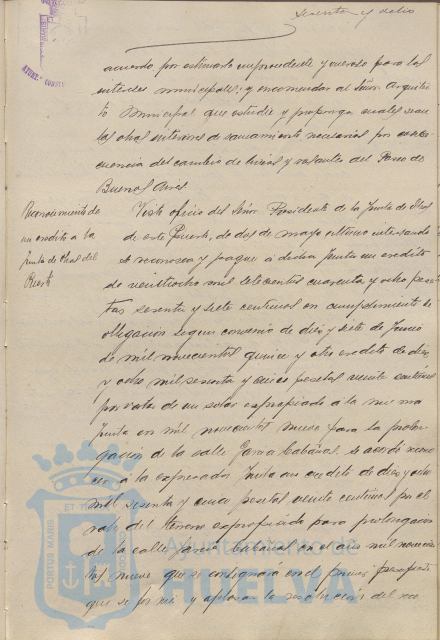 Sesenta y ocho
AYUNT.º CONSTI
acuerdo por estimarlo improcedente y oneroso para los
intereses municipales; y encomendar al Señor Arquitec
to Municipal que estudie y proponga cuales sean
las obras interiores de saneamiento necesarias por conse
cuencia del cambio de líneas y rasantes del Paseo de
Buenos Aires.
Reconocimiento de
un credito a la
Junta de Obras del
Puerto
Visto oficio del Señor Presidente de la Junta de Obras
de este Puerto, de dos de mayo ultimo interesando
se reconozca y pague a dicha Junta un credito
de veintiocho mil setecientas cuarenta y ocho pese
tas sesenta y siete centimos en cumplimiento de
obligación segun convenio de diez y siete de Junio
de mil novecientos quince y otro credito de diez
y ocho mil sesenta y cinco pesetas veinte centimos
por vata de un solar expropiado a la misma
Junta en mil novecientos nueve para la prolon
gación de la calle Garcia Cabañas, se acordó recono
cer a la expresada Junta un credito de diez y ocho
mil sesenta y cinco pesetas veinte centimos por el
vata del terreno expropiado para prolongacion
de la calle Garcia Cabañas en el año mil novecien
tos nueve que se consignará en el primer presupuesto
que se forme y aplazar la resolución del
PORTUS MARIS
ET TERRÆ CUSTODIA
Ayuntamiento de
HUELVA